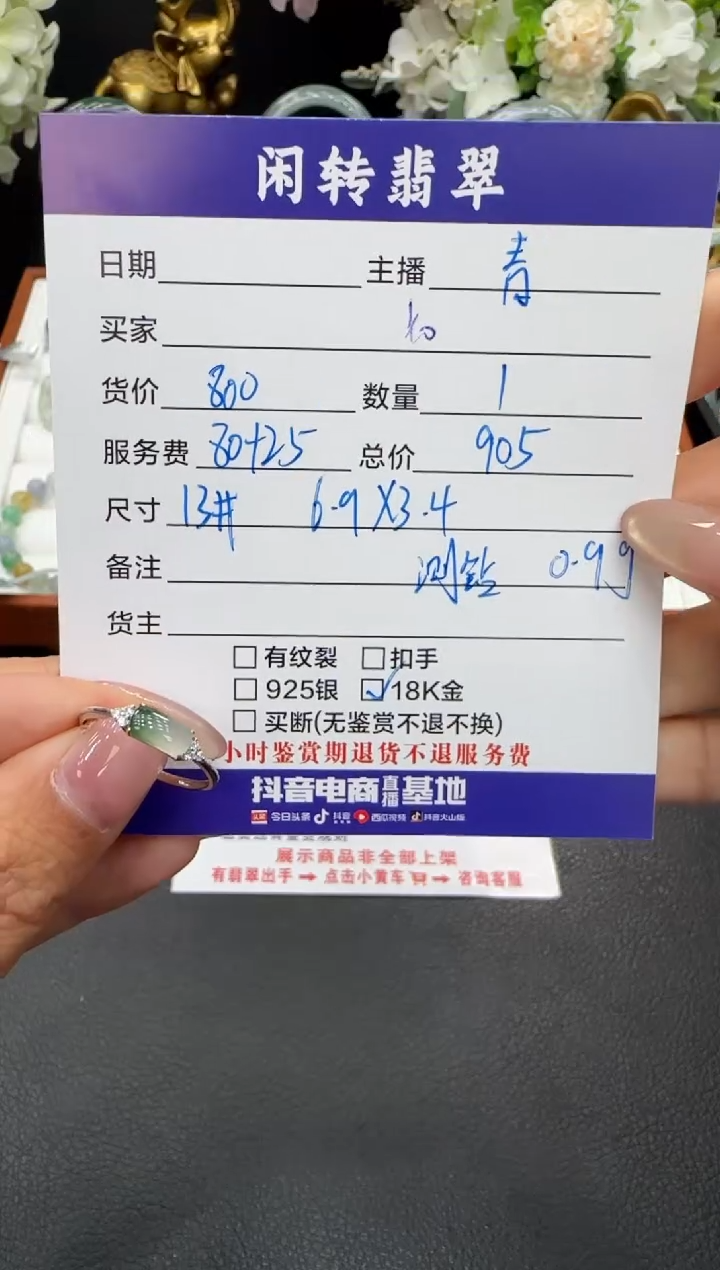 闲转翡翠
日期 主播 青
买家
货价 800 数量 1
服务费 80+25 总价 905
尺寸 13# 6.9X3.4
备注 测钻 0.9g
货主
有纹裂 扣手
925银 ✓18K金
买断(无鉴赏不退不换)
小时鉴赏期退货不退服务费
抖音电商直播基地
头条 今日头条 抖音 西瓜视频 抖音火山版
展示商品非全部上架
有翡翠出手→点击小黄车→咨询客服